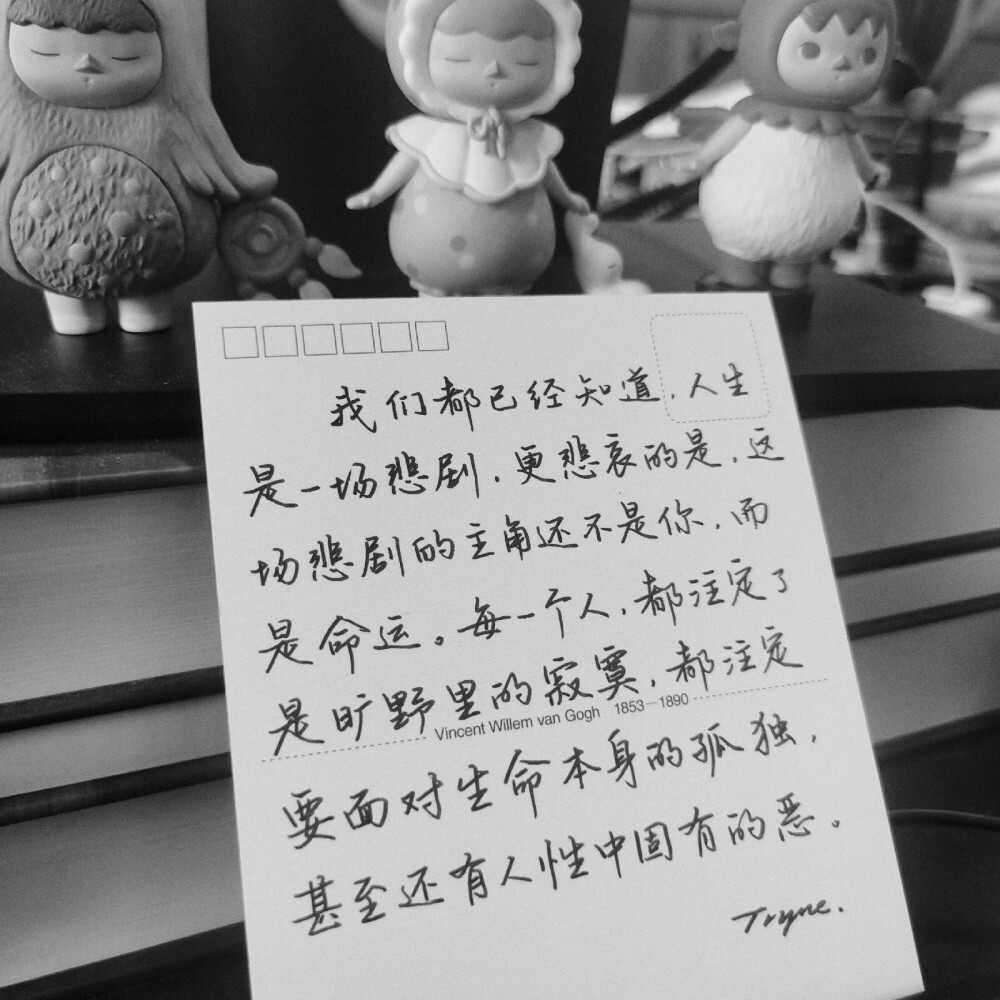 我们都已经知道，人生
是一场悲剧，更悲哀的是，这
场悲剧的主角还不是你，而
是命运。每一个人，都注定了
是旷野里的寂寞，都注定
Vincent Willem van Gogh 1853—1890
要面对生命本身的孤独，
甚至还有人性中固有的恶。
Tryne.